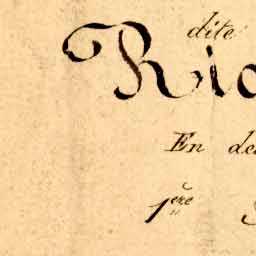 dite
Ric
En de
1ere